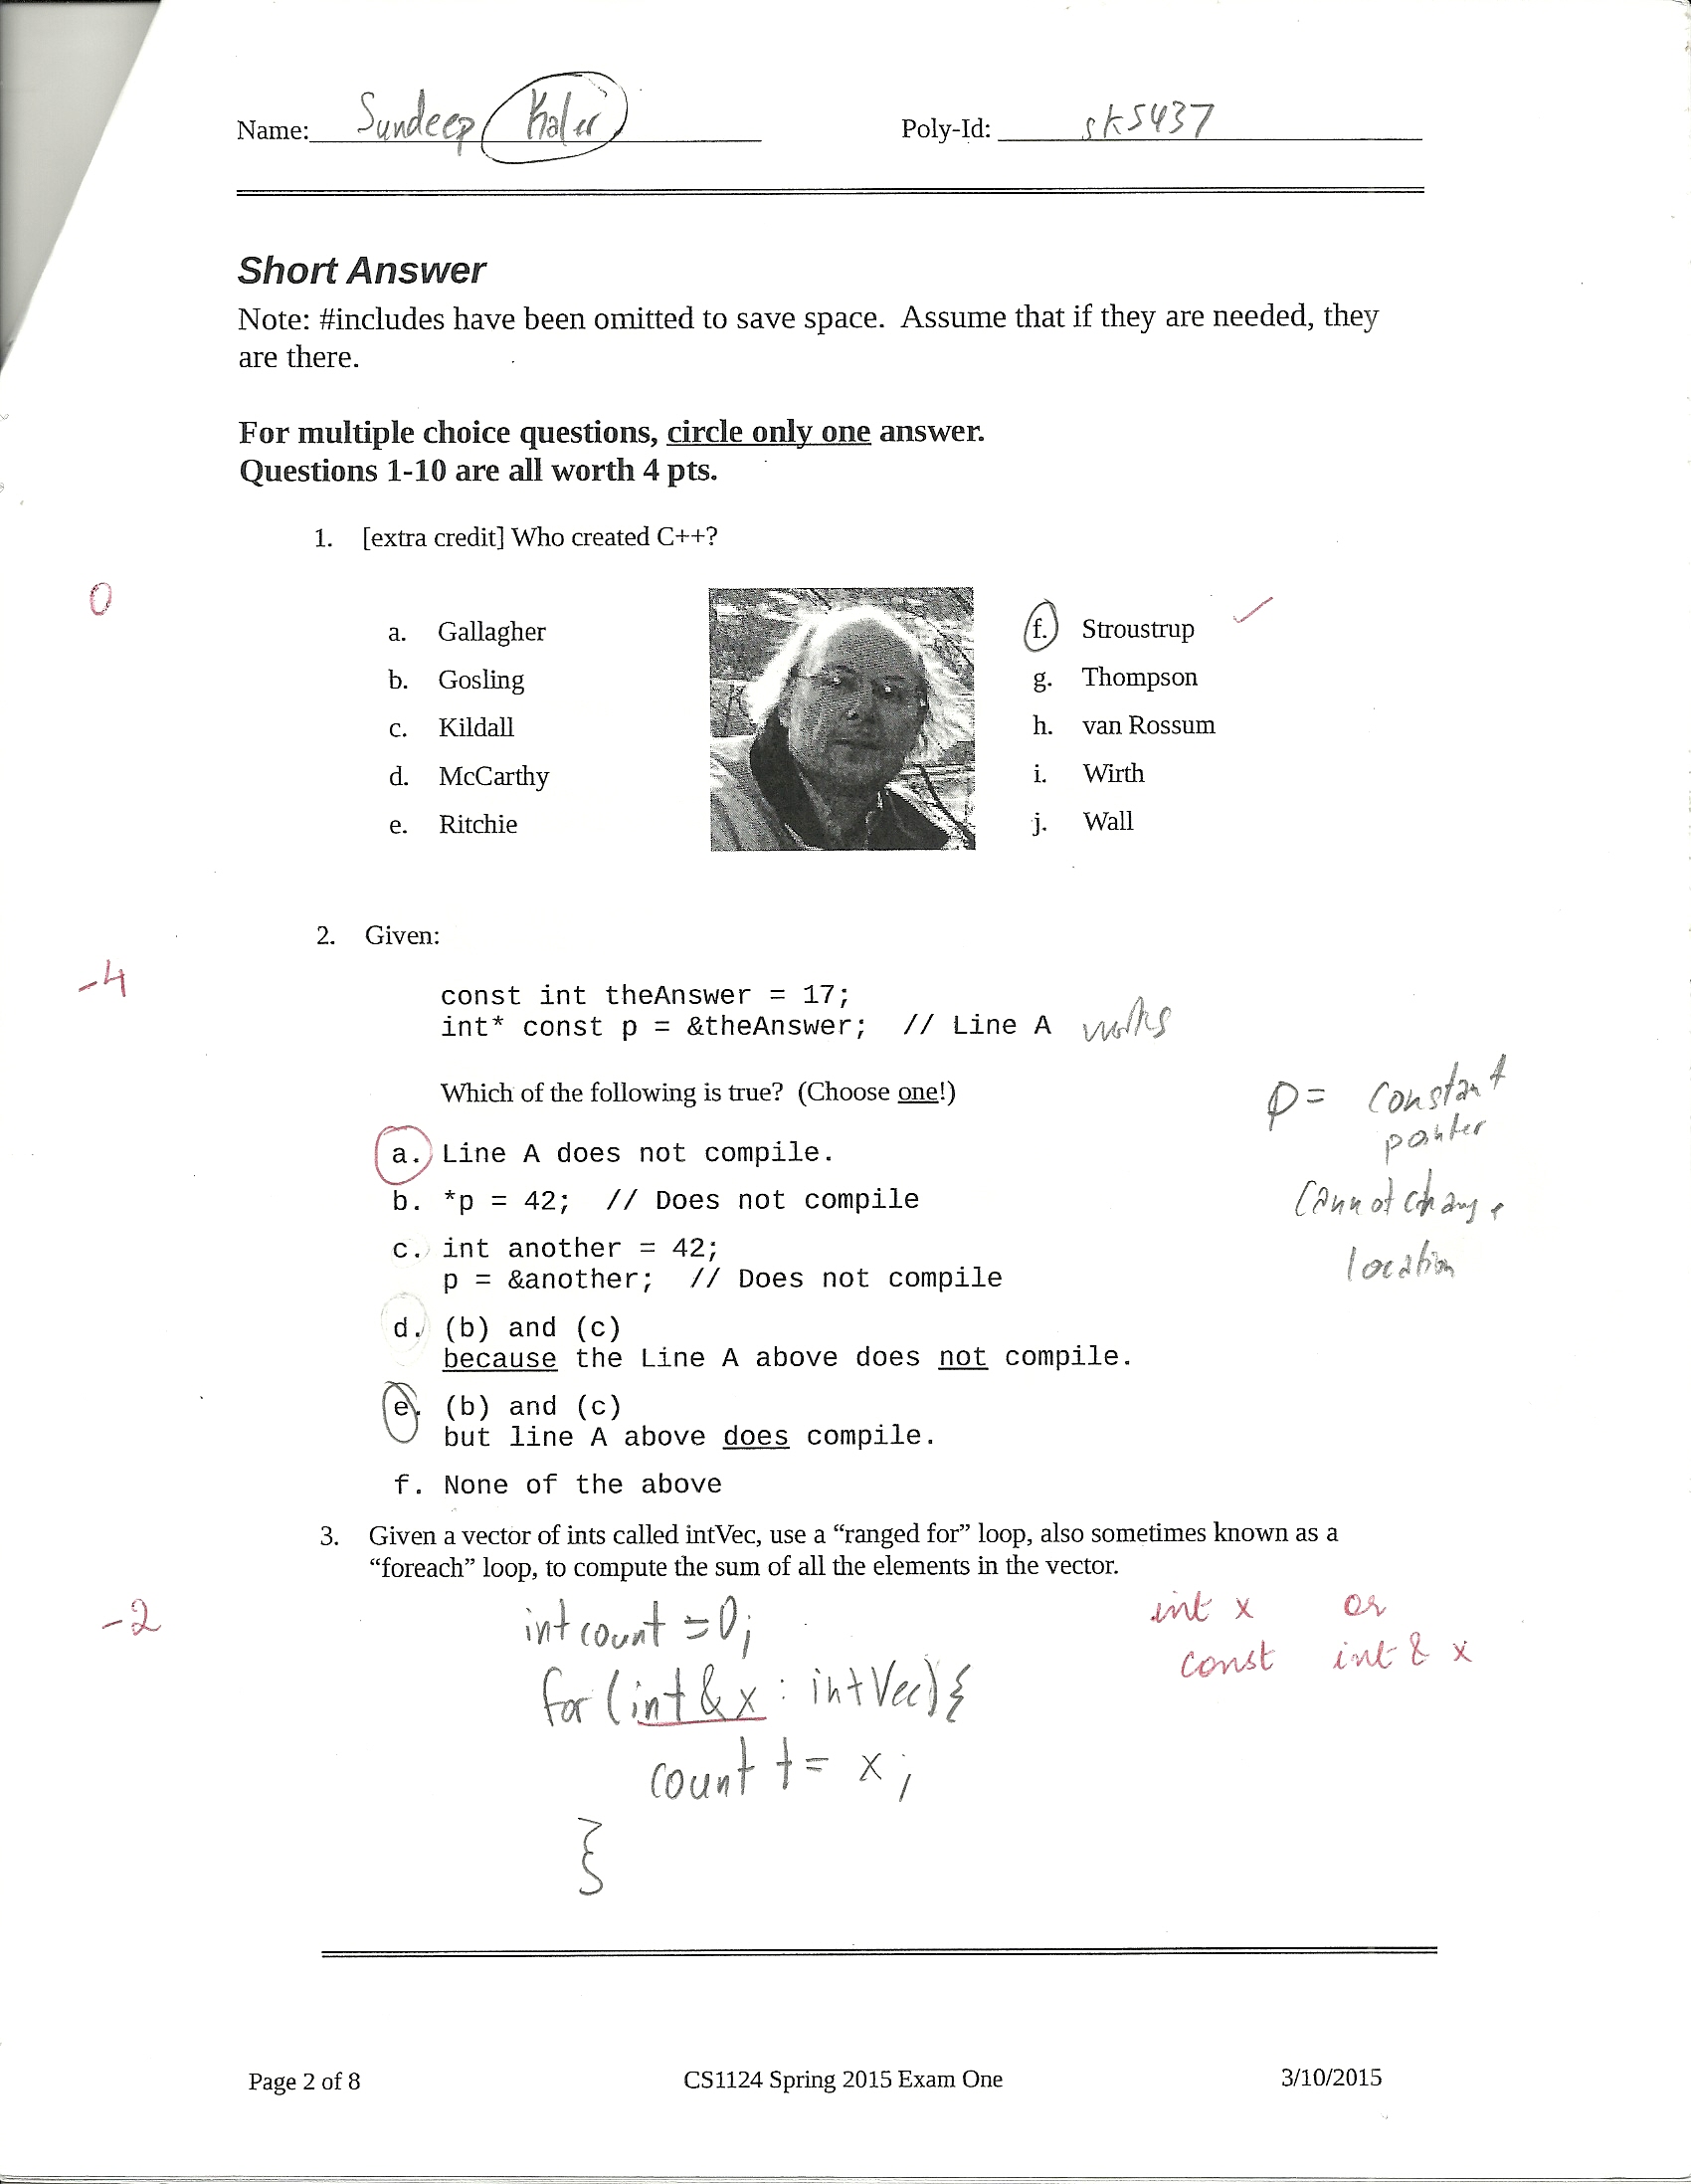 Name: Sundeep Kaler Poly-Id: sk5437
Short Answer
Note: #includes have been omitted to save space. Assume that if they are needed, they
are there.
For multiple choice questions, circle only one answer.
Questions 1-10 are all worth 4 pts.
1. [extra credit] Who created C++?
0
a. Gallagher
b. Gosling
c. Kildall
d. McCarthy
e. Ritchie
f. Stroustrup ✓
g. Thompson
h. van Rossum
i. Wirth
j. Wall
2. Given:
-4
const int theAnswer = 17;
int* const p = &theAnswer; // Line A works
Which of the following is true? (Choose one!)
p = constant
pointer
cannot change
location
a. Line A does not compile.
b. *p = 42; // Does not compile
c. int another = 42;
p = &another; // Does not compile
d. (b) and (c)
because the Line A above does not compile.
e. (b) and (c)
but line A above does compile.
f. None of the above
3. Given a vector of ints called intVec, use a “ranged for” loop, also sometimes known as a
“foreach” loop, to compute the sum of all the elements in the vector.
-2
int count = 0;
for (int & x : intVec) {
count += x;
}
int x or
const int & x
Page 2 of 8 CS1124 Spring 2015 Exam One 3/10/2015